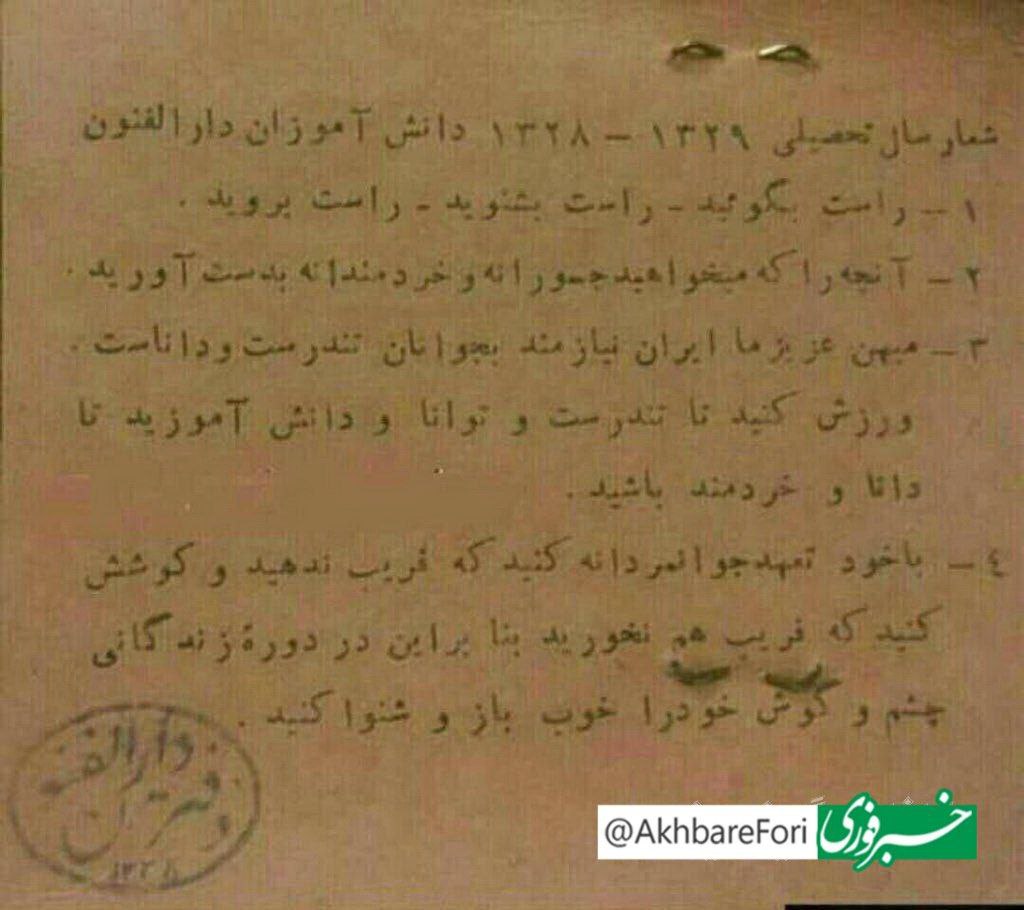 شعار سال تحصیلی ۱۳۲۹ – ۱۳۲۸ دانش آموزان دارالفنون
۱ – راست بگوئید – راست بشنوید – راست بروید .
۲ – آنچه را که میخواهید جسورانه و خردمندانه بدست آورید .
۳ – میهن عزیز ما ایران نیازمند بجوانان تندرست و داناست .
ورزش کنید تا تندرست و توانا و دانش آموزید تا
دانا و خردمند باشید .
٤ – باخود تعهد جوانمردانه کنید که فریب ندهید و کوشش
کنید که فریب هم نخورید بنا براین در دورهٔ زندگانی
چشم و گوش خودرا خوب باز و شنوا کنید .
دارالفنون
دفتر
@AkhbareFori خبرفوری